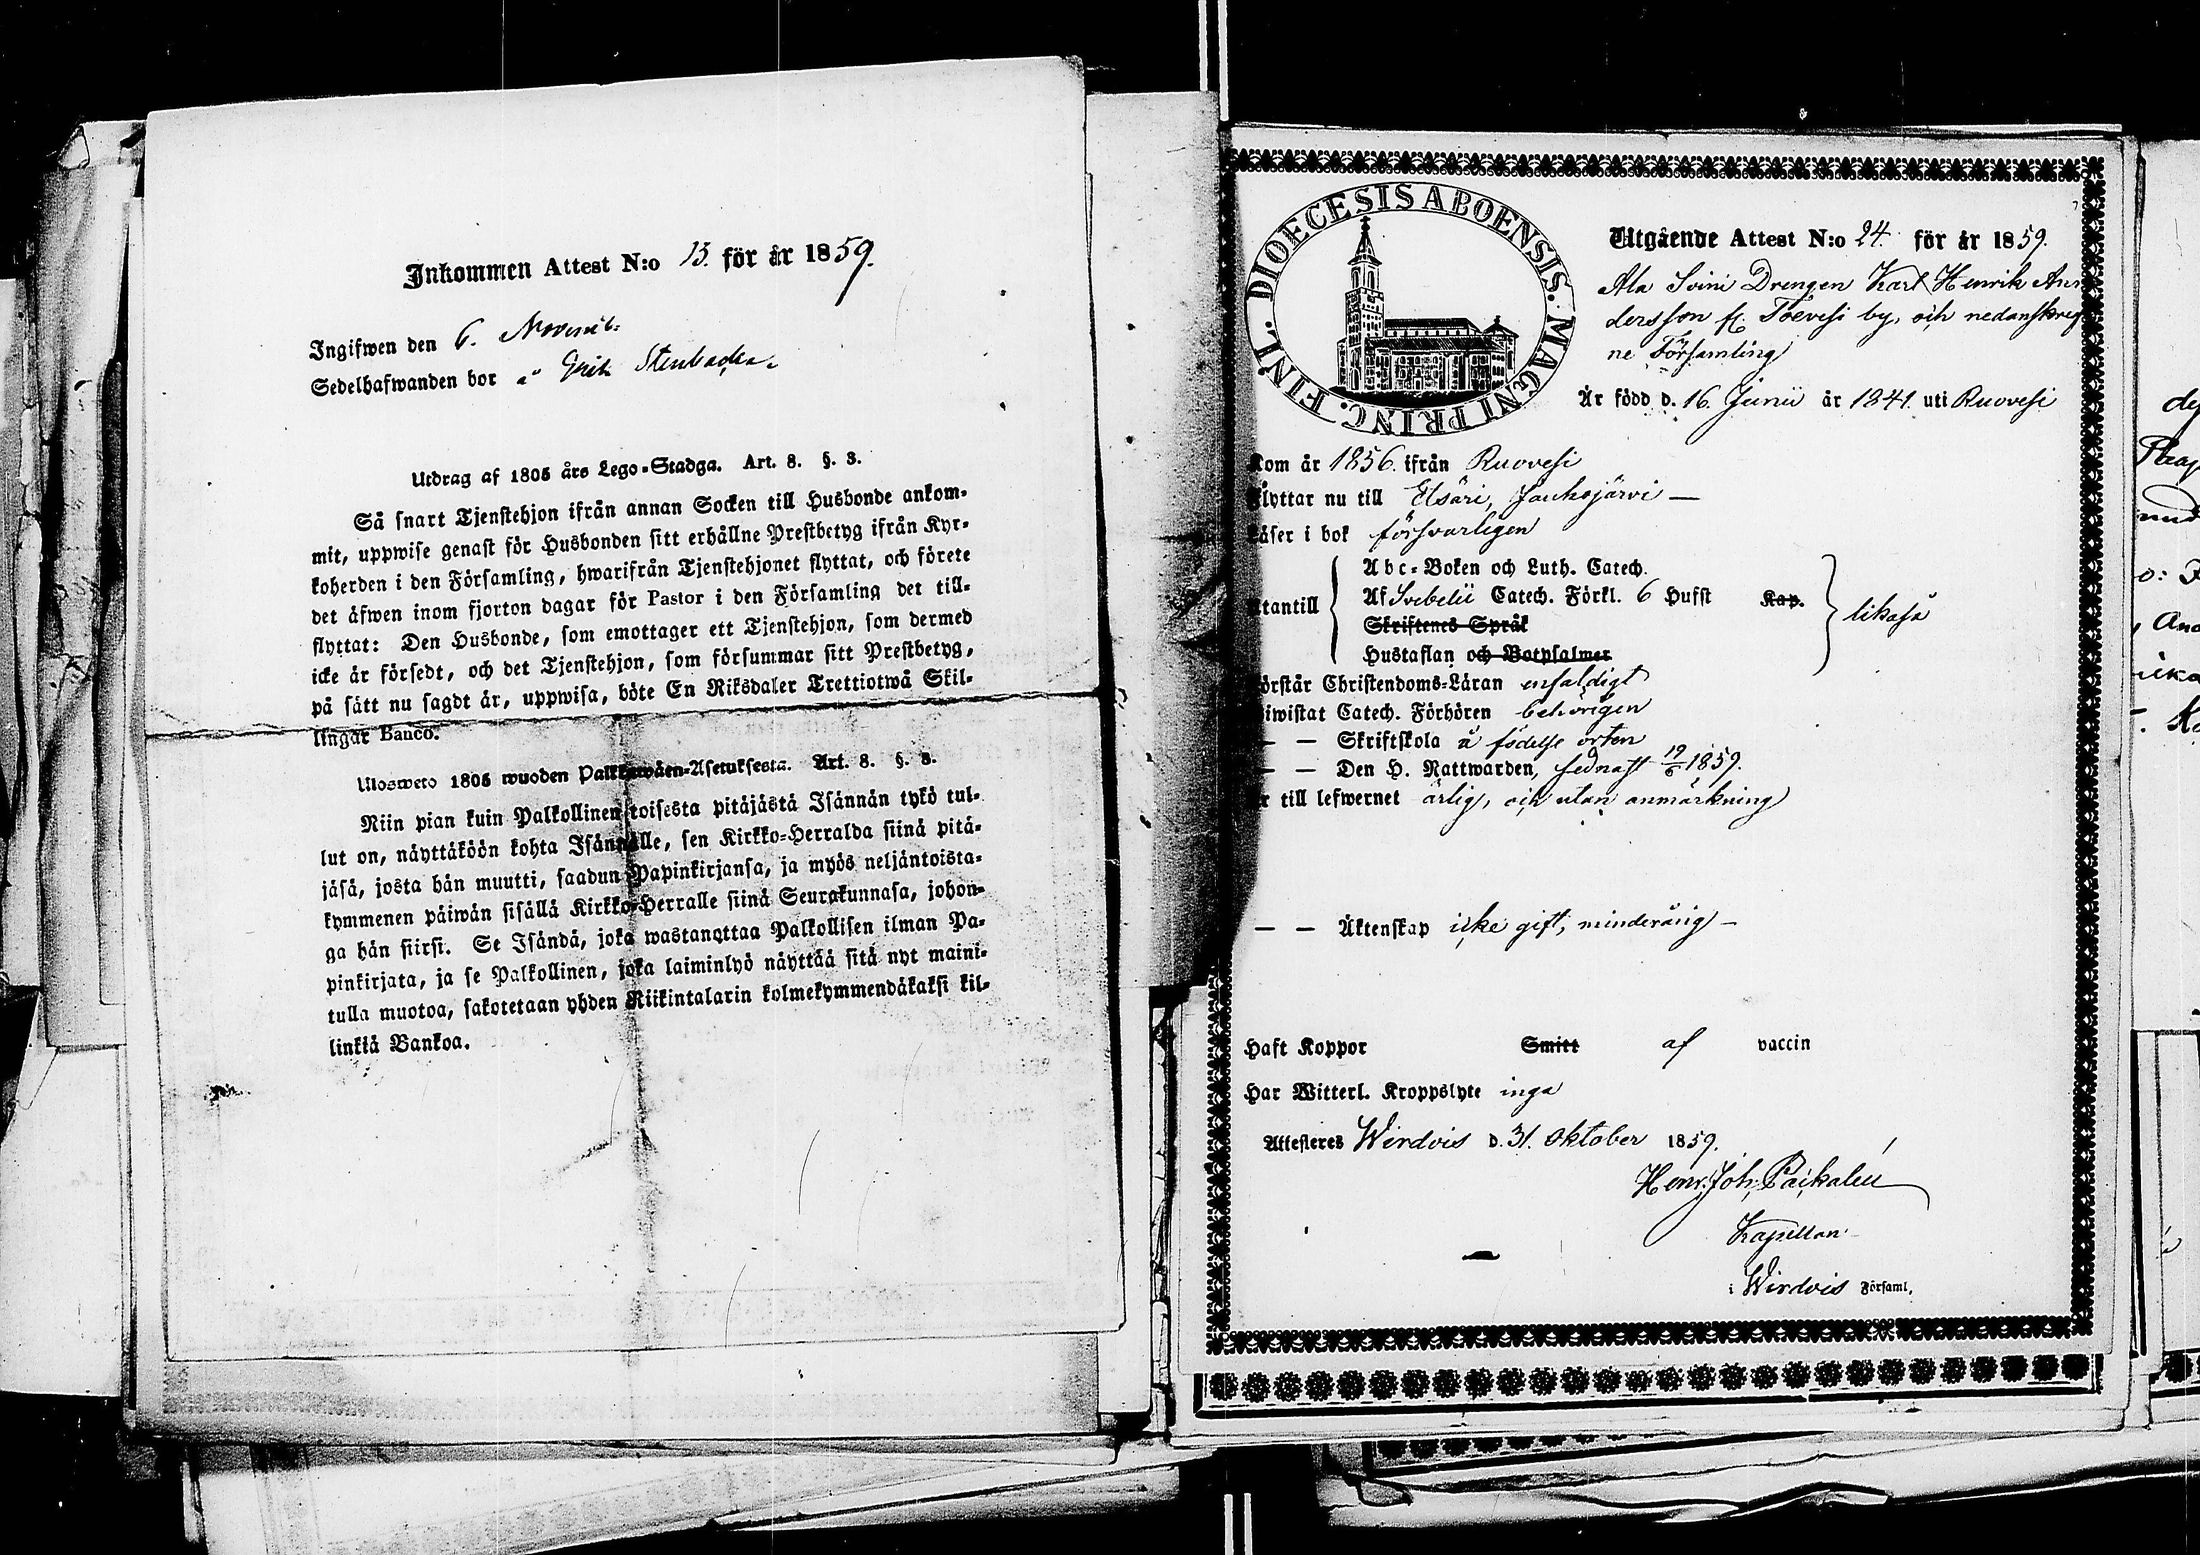 Inkommen Attest N:o 13. för år 1859.
Ingifwen den 6. Novemb:
Sedelhafwanden bor å Erik Stenbacka.
Utdrag af 1805 års Lego-Stadga. Art. 8. §. 3.
Så snart Tjenstehjon ifrån annan Socken till Husbonde ankom-
mit, uppwise genast för Husbonden sitt erhållne Prestbetyg ifrån Kyr-
koherden i den Församling, hwarifrån Tjenstehjonet flyttat, och förete
det äfwen inom fjorton dagar för Pastor i den Församling det till-
flyttat: Den Husbonde, som emottager ett Tjenstehjon, som dermed
icke är försedt, och det Tjenstehjon, som försummar sitt Prestbetyg,
på sätt nu sagdt är, uppwisa, böte En Riksdaler Trettiotwå Skil-
lingar Banco.
Ulosweto 1805 wuoden Palkkawäen-Asetuksesta. Art. 8. §. 3.
Niin pian kuin Palkollinen toisesta pitäjästä Isännän tykö tul-
lut on, näyttäköön kohta Isännälle, sen Kirkko-Herralda siinä pitä-
jäsä, josta hän muutti, saadun Papinkirjansa, ja myös neljäntoista-
kymmenen päiwän sisällä Kirkko-Herralle siinä Seurakunnasa, johon-
ga hän siirsi. Se Isändä, joka wastanottaa Palkollisen ilman Pa-
pinkirjata, ja se Palkollinen, joka laiminlyö näyttää sitä nyt maini-
tulla muotoa, sakotetaan yhden Riikintalarin kolmekymmendäkaksi kil-
linkiä Bankoa.
DIOECESIS ABOENSIS. MAGNI PRINC. FINL.
Utgående Attest N:o 24. för år 1859.
Ala Svini Drengen Karl Henrik An
dersson fr. Toevesi by, och nedanskref
ne Församling
Är född d. 16 Junii år 1841. uti Ruovesi
Kom år 1856. ifrån Ruovesi
Flyttar nu till Etsäri, Jauhojärvi —
Läser i bok försvarligen
Utantill
Abc-Boken och Luth. Catech.
Af Svebelii Catech. Förkl. 6 Hufst Kap.
Skriftenes Språk
Hustaflan och Botpsalmer
likaså
Förstår Christendoms-Läran enfaldigt
Biwistat Catech. Förhören behörigen
— — Skriftskola å födelse orten
— — Den H. Nattwarden, sednast 19/6 1859.
Är till lefwernet ärlig, och utan anmärkning
— — Äktenskap icke gift, minderårig —
Haft Koppor Smitt af vaccin
Har Witterl. Kroppslyte inga
Attesteres Wirdois d. 31. Oktober 1859.
Henr. Joh. Paikalén
Kapellan
i Wirdois Församl.